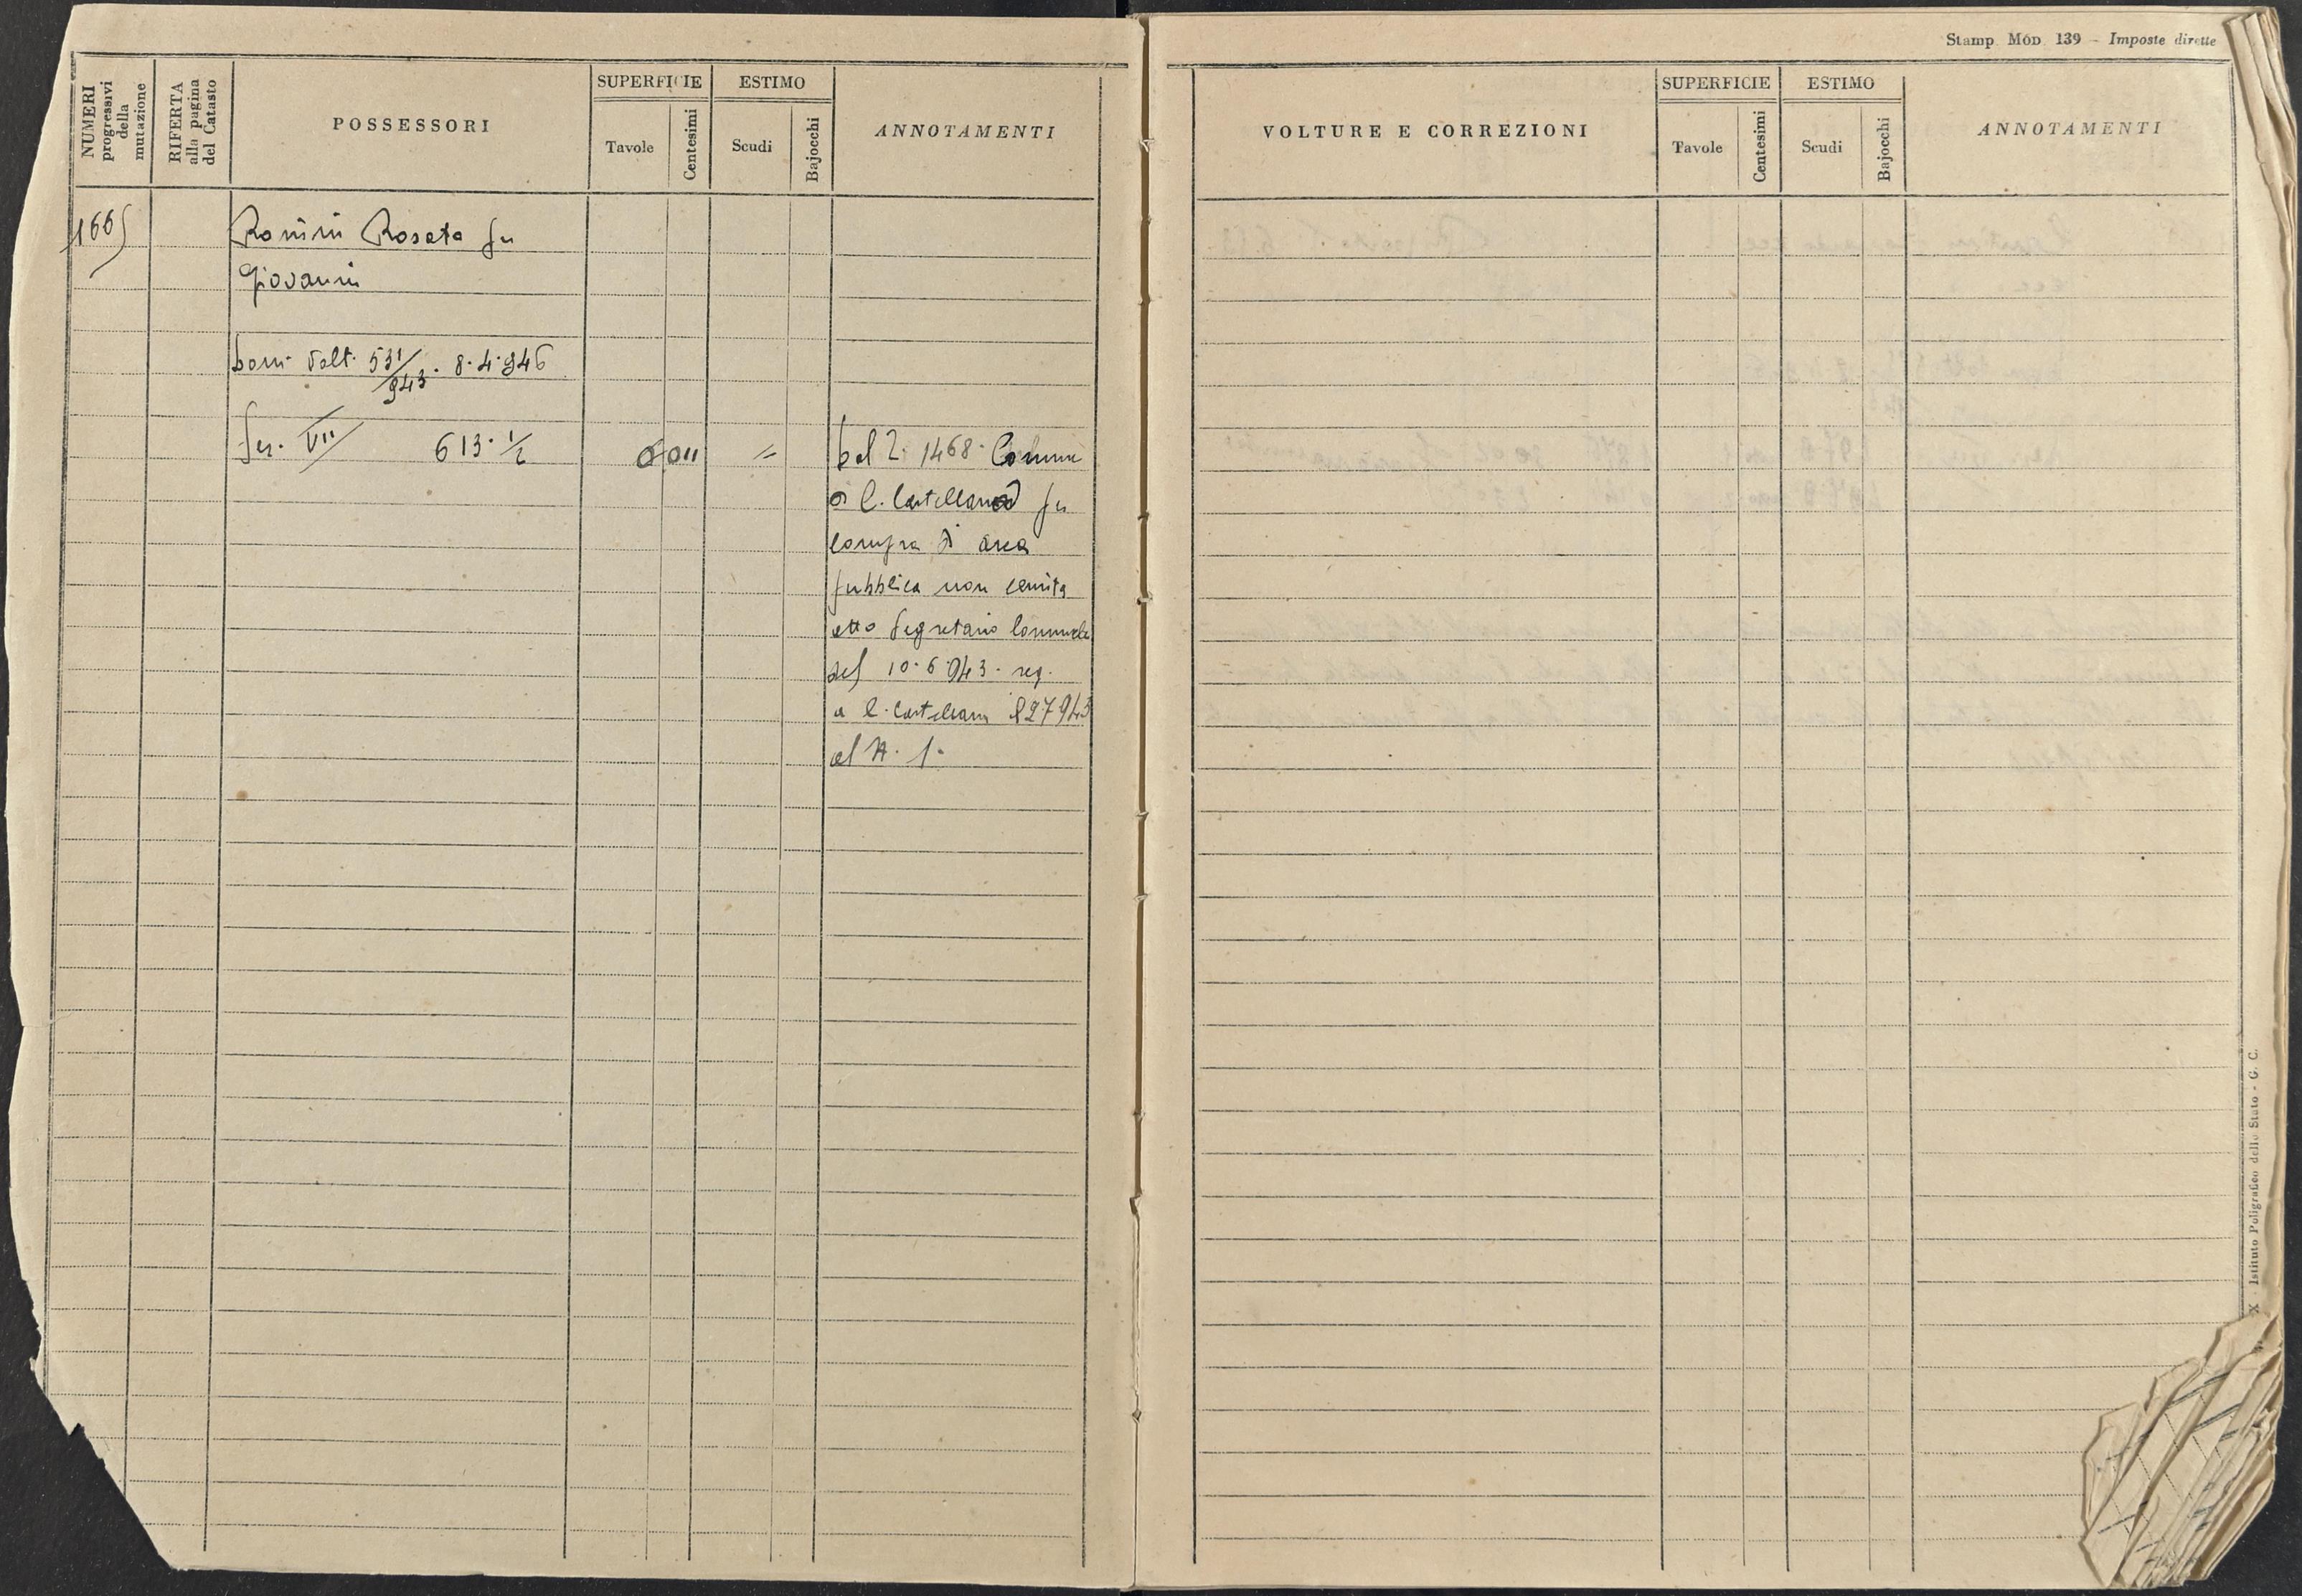 NUMERI progressivi della mutazione
RIFERTA alla pagina del Catasto
POSSESSORI
SUPERFICIE
Tavole
Centesimi
ESTIMO
Scudi
Bajocchi
ANNOTAMENTI
1665
Ronini Rosata fu
Giovanni
Volt. 531/943. 8.4.946
Sez. VII 613. 1/2
0 011 =
Dal 2. 1468. Comune
di C. Castellana per
compra di area
pubblica non censita
atto Segretario Comunale
del 10.6.943. reg.
a C. Castellana
al N. 1.
Stamp. Mod. 139 - Imposte dirette
VOLTURE E CORREZIONI
SUPERFICIE
Tavole
Centesimi
ESTIMO
Scudi
Bajocchi
ANNOTAMENTI
X - Istituto Poligrafico dello Stato - G. C.